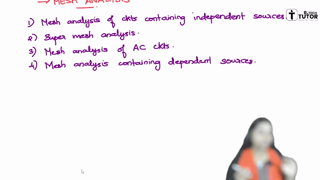 → MESH ANALYSIS
1) Mesh analysis of ckts containing independent sources.
2) Super mesh analysis.
3) Mesh analysis of AC ckts.
4) Mesh analysis containing dependent sources.
TUTOR